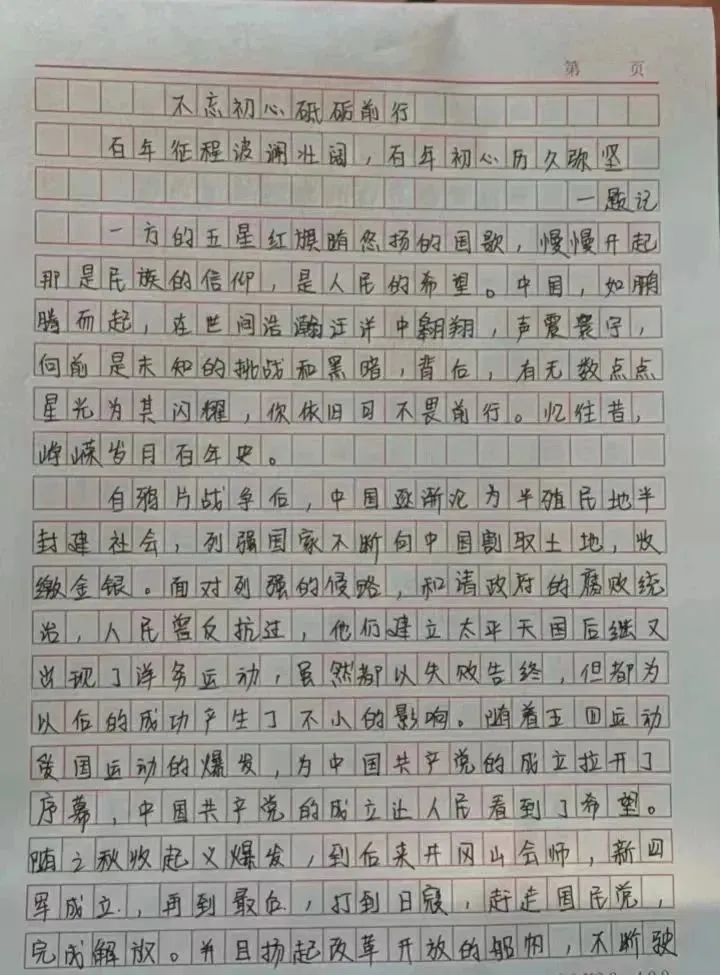 第 页
不忘初心砥砺前行
百年征程波澜壮阔，百年初心历久弥坚
一题记
一方的五星红旗随悠扬的国歌，慢慢升起
那是民族的信仰，是人民的希望。中国，如鹏
腾而起，在世间浩瀚汪洋中翱翔，声震寰宇，
向前是未知的挑战和黑暗，背后，有无数点点
星光为其闪耀，你依旧可不畏前行。忆往昔，
峥嵘岁月百年史。
自鸦片战争后，中国逐渐沦为半殖民地半
封建社会，列强国家不断向中国割取土地，收
缴金银。面对列强的侵略，和清政府的腐败统
治，人民曾反抗过，他们建立太平天国后继又
出现了洋务运动，虽然都以失败告终，但都为
以后的成功产生了不小的影响。随着五四运动
爱国运动的爆发，为中国共产党的成立拉开了
序幕，中国共产党的成立让人民看到了希望。
随之秋收起义爆发，到后来井冈山会师，新四
军成立，再到最后，打到日寇，赶走国民党，
完成解放。并且扬起改革开放的船帆，不断驶